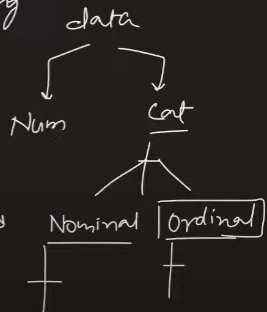 data
Num Cat
Nominal Ordinal